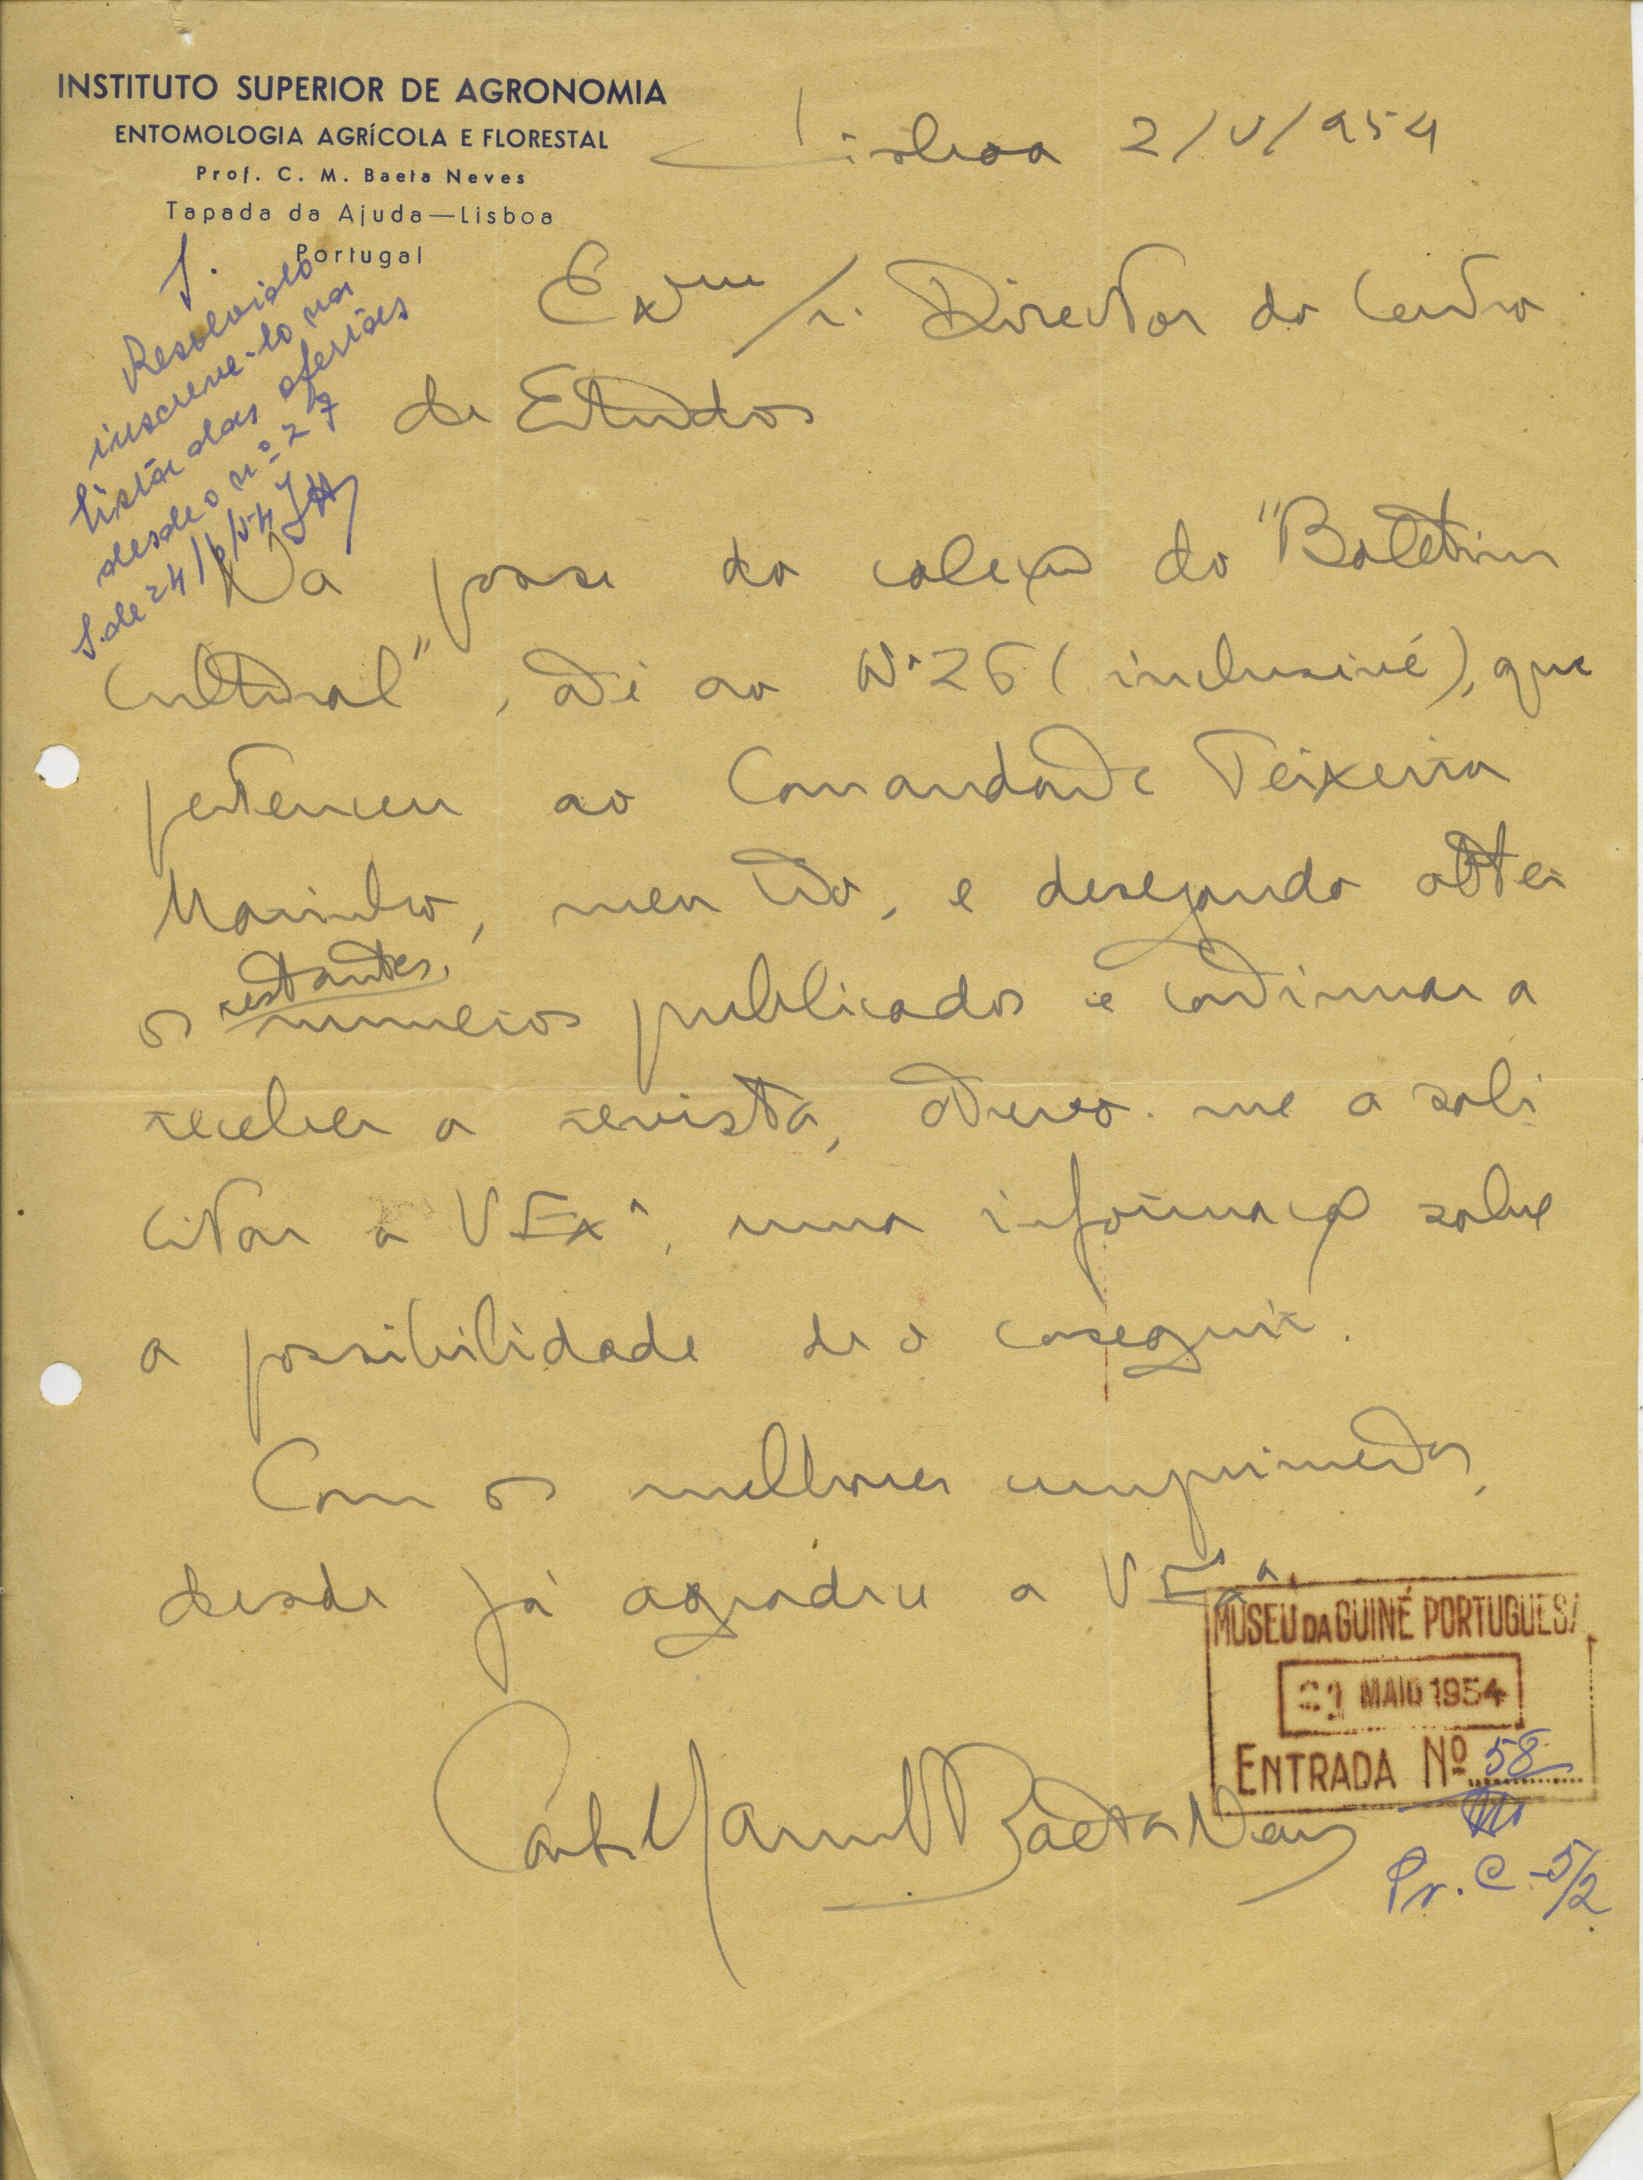 INSTITUTO SUPERIOR DE AGRONOMIA
ENTOMOLOGIA AGRÍCOLA E FLORESTAL
Prof. C. M. Baeta Neves
Tapada da Ajuda—Lisboa
Portugal
Lisboa 2/V/954
S.
Resolvido
inscreve-lo na
lista das ofertas
desde o nº 27
S. de 24/5/54
Exmo Sr. Director do Centro
de Estudos
Na posse da colexão do "Boletim
Cultural", até ao Nº 26 (inclusivé), que
pertenceu ao Comandante Teixeira
Marinho, meu tio, e desejando obter
os restantes numeros publicados e continuar a
receber a revista, atrevo-me a soli
citar a V Exª, uma informação sobre
a possibilidade de o conseguir.
Com os melhores cumprimentos,
desde já agradeceu a V Exª
Carlos Manuel Baeta Neves
MUSEU DA GUINÉ PORTUGUESA
21 MAIO 1954
ENTRADA Nº 58
Pr. C-5/2